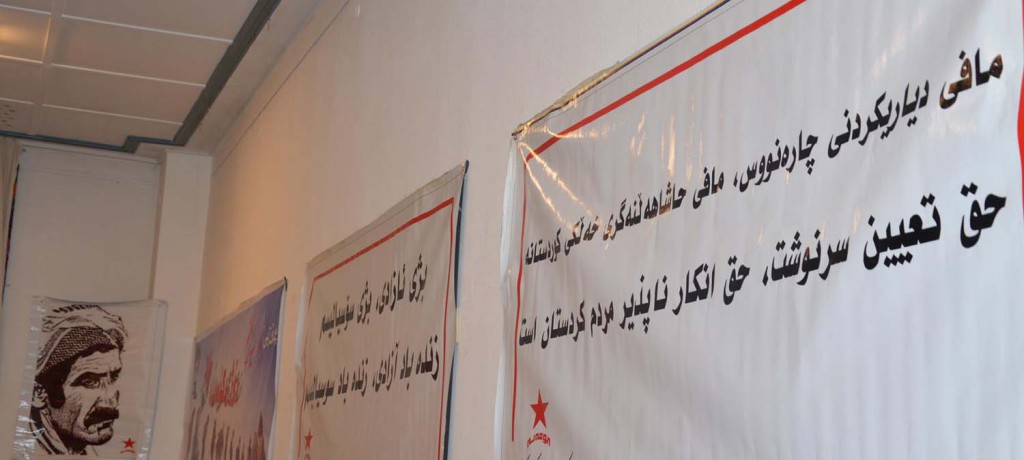 مافی دیاریکردنی چارەنووس، مافی حاشاهەڵنەگری خەڵکی کوردستانە
حق تعیین سرنوشت، حق انکار ناپذیر مردم کردستان است
بژی ئازادی، بژی سۆسیالیسم
زنده باد آزادی، زنده باد سوسیالیسم